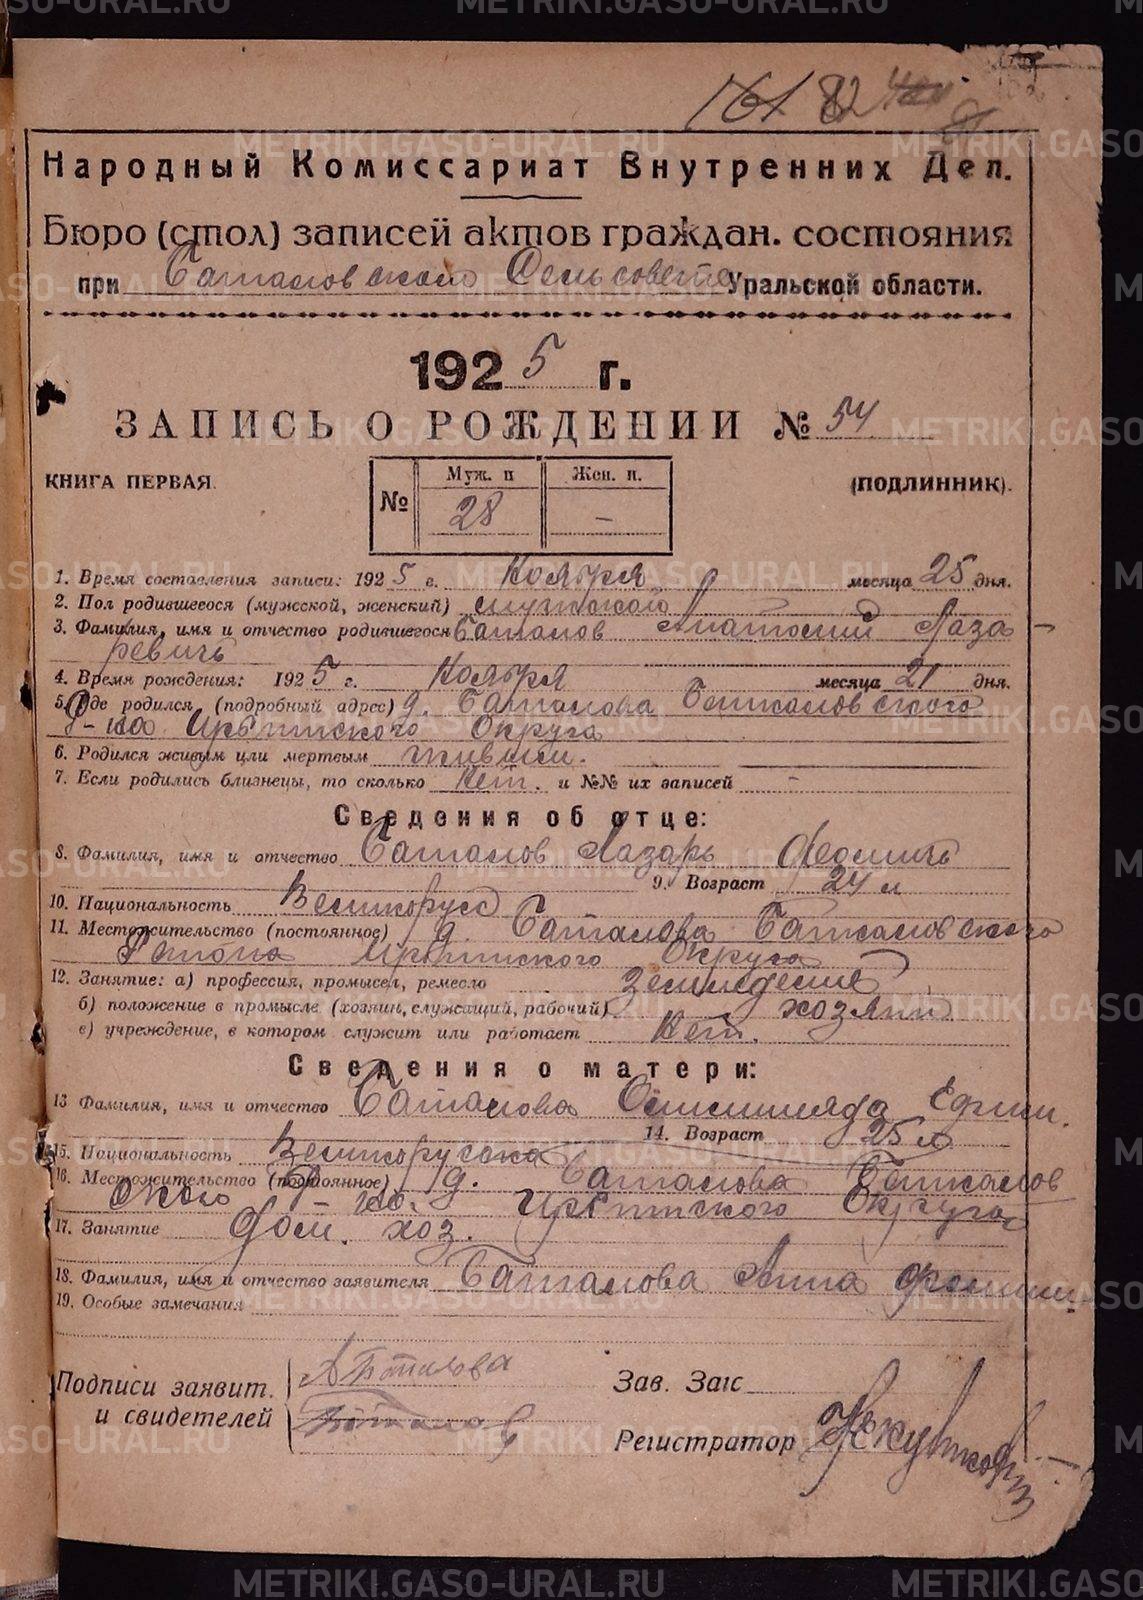 161 82
Народный Комиссариат Внутренних Дел.
Бюро (стол) записей актов граждан. состояния
при Баталовском Сельсовете Уральской области.
1925 г.
ЗАПИСЬ О РОЖДЕНИИ № 54
КНИГА ПЕРВАЯ.
(ПОДЛИННИК).
№ Муж. п Жен. п.
28 –
1. Время составления записи: 1925 г. Ноября месяца 25 дня.
2. Пол родившегося (мужской, женский) мужского
3. Фамилия, имя и отчество родившегося Баталов Анатолий Лаза
ревичь
4. Время рождения: 1925 г. Ноября месяца 21 дня.
5. Где родился (подробный адрес) д. Баталова Баткаловского
Р-на Ирбитского Округа
6. Родился живым или мертвым живым.
7. Если родились близнецы, то сколько Нет. и №№ их записей -
Сведения об отце:
8. Фамилия, имя и отчество Баталов Лазарь
9. Возраст 24 л
10. Национальность Великорусс
11. Местожительство (постоянное) д. Баталова Баткаловского
Района Ирбитского Округа
12. Занятие: а) профессия, промысел, ремесло земледелия
б) положение в промысле (хозяин, служащий, рабочий) хозяин
в) учреждение, в котором служит или работает Нет.
Сведения о матери:
13 Фамилия, имя и отчество Баталова Ефим.
14. Возраст 25 л
15. Национальность Великорусска
16. Местожительство (постоянное) д. Баталова Баткалов
ского Р-на. Ирбитского Округа
17. Занятие Дом. хоз.
18. Фамилия, имя и отчество заявителя Баталова Анна
19. Особые замечания
Подписи заявит.
и свидетелей
А Баталова
Баталов
Зав. Загс
Регистратор
METRIKI.GASO-URAL.RU